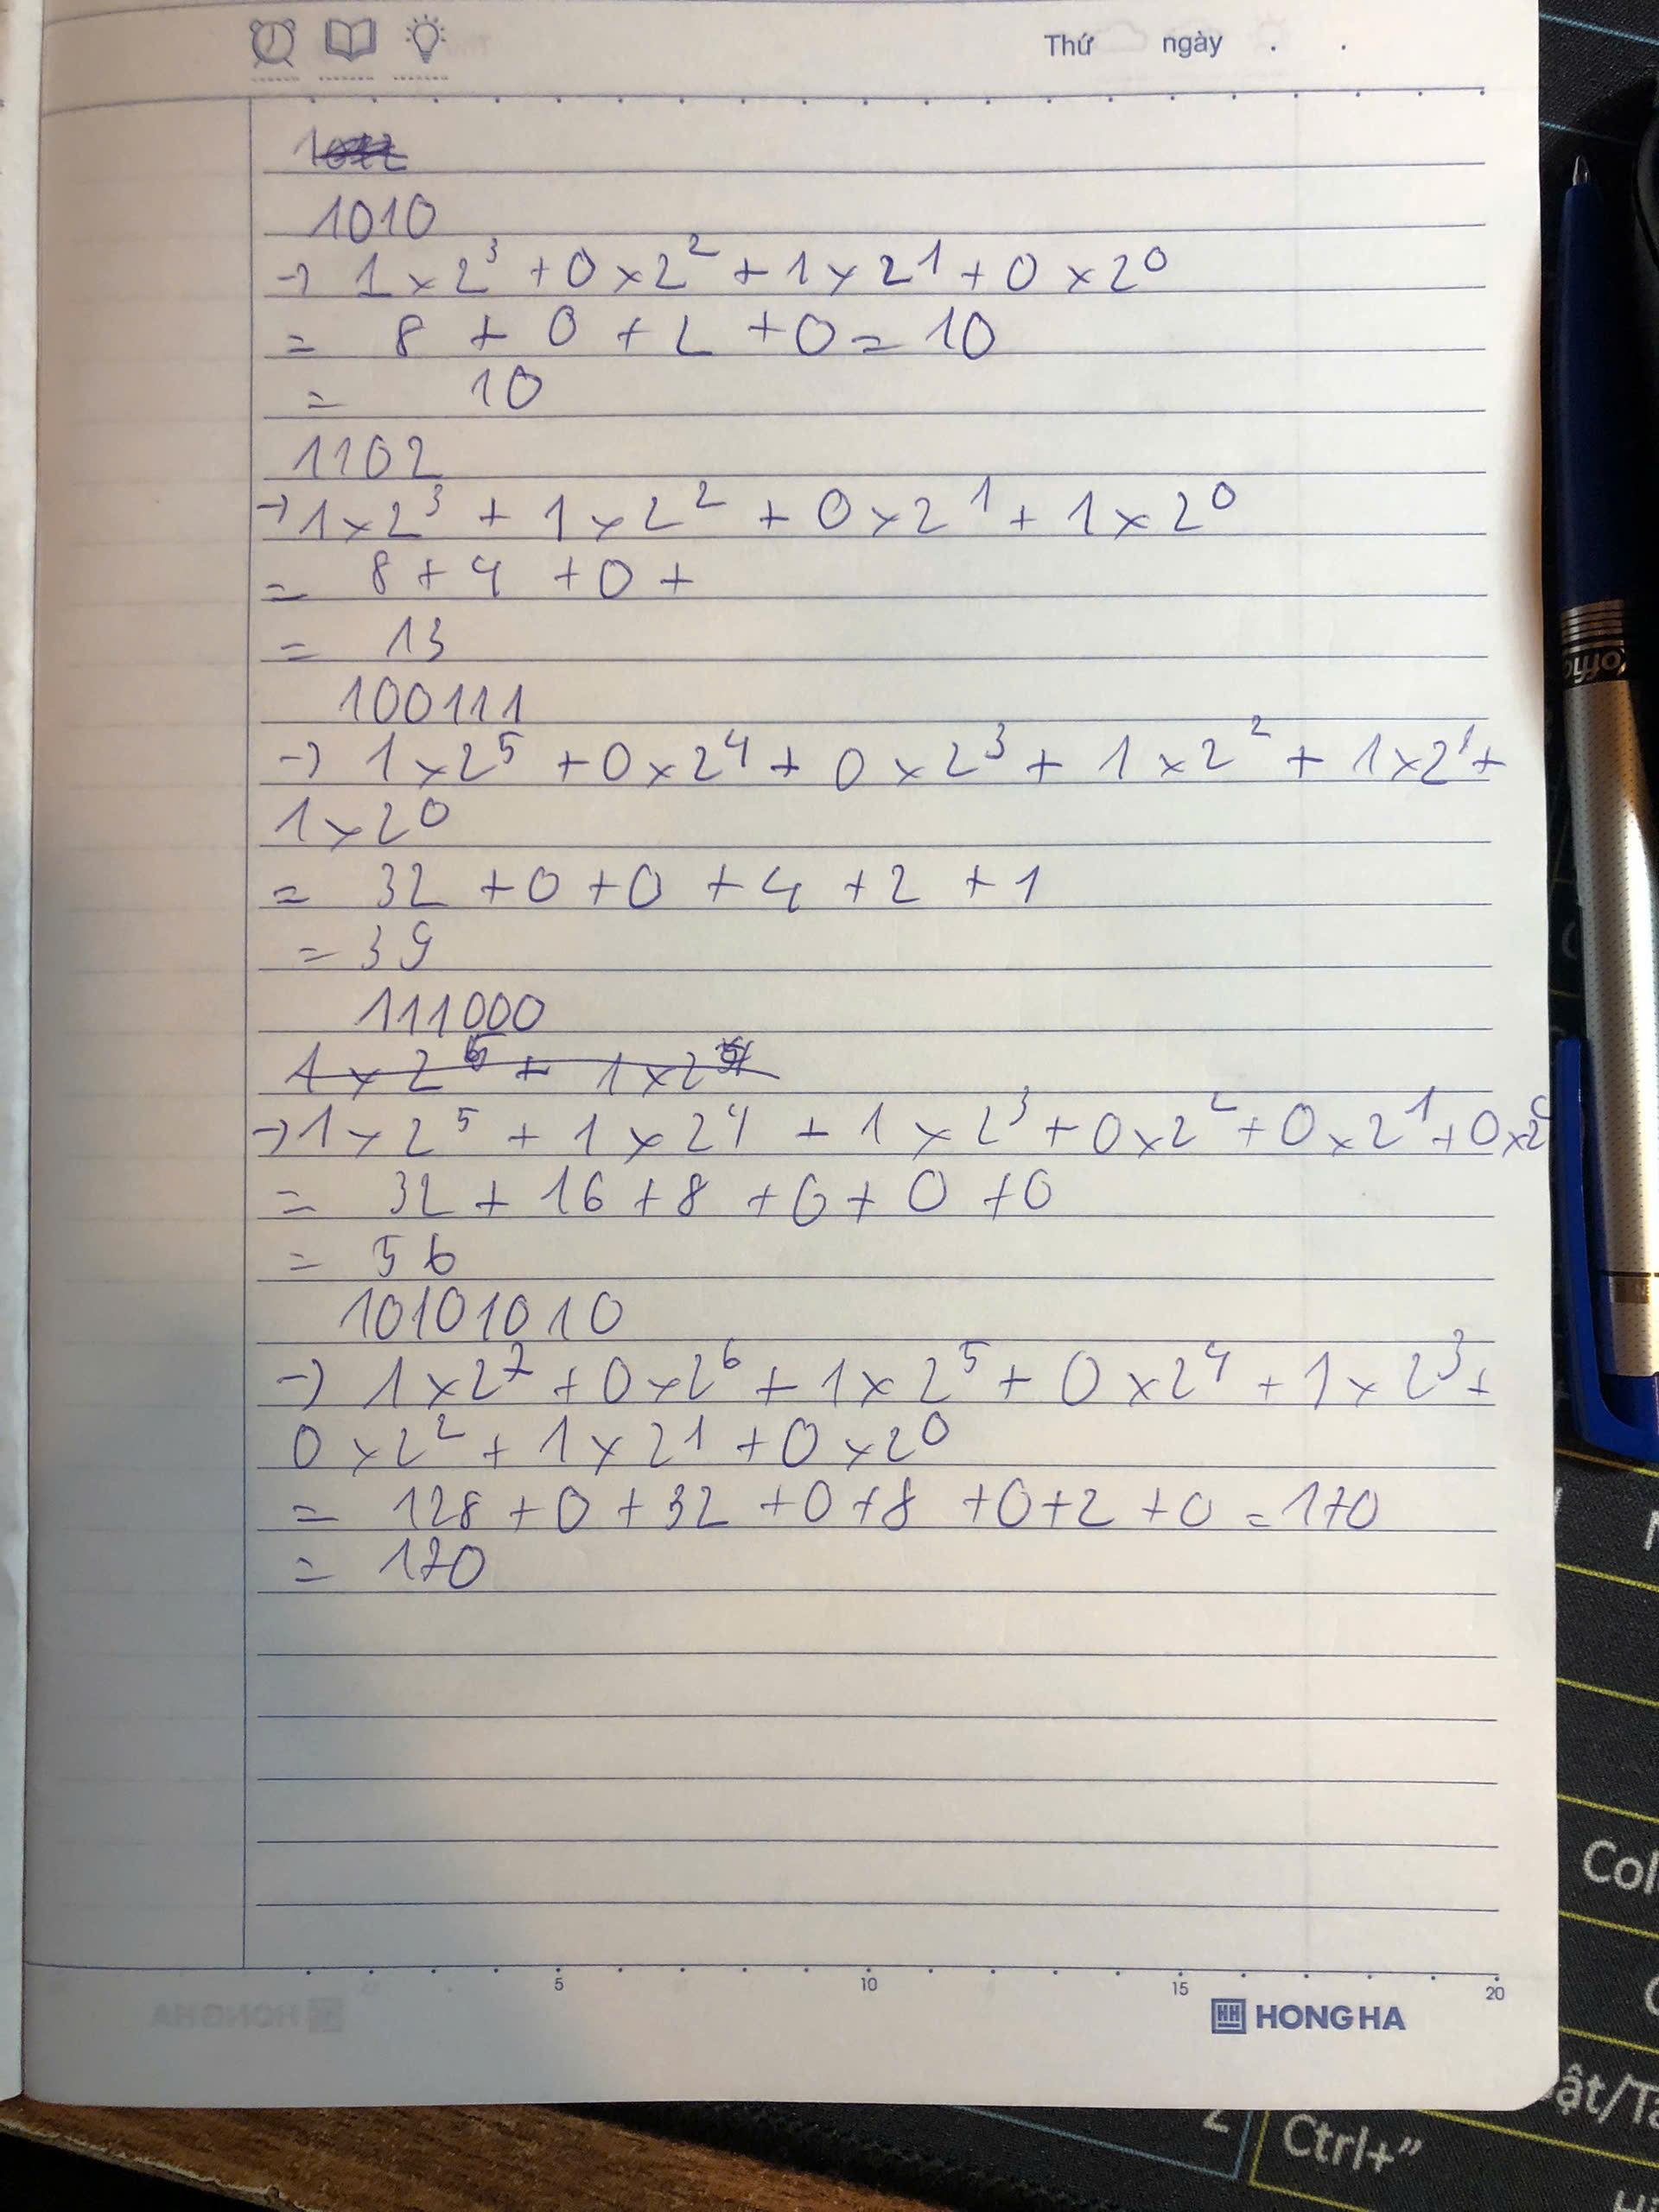 Thứ ngày . .
1010
→ 1 x 2³ + 0 x 2² + 1 x 2¹ + 0 x 2⁰
= 8 + 0 + 2 + 0 = 10
= 10
1102
→ 1 x 2³ + 1 x 2² + 0 x 2¹ + 1 x 2⁰
= 8 + 4 + 0 +
= 13
100111
→ 1 x 2⁵ + 0 x 2⁴ + 0 x 2³ + 1 x 2² + 1 x 2¹ +
1 x 2⁰
= 32 + 0 + 0 + 4 + 2 + 1
= 39
111000
→ 1 x 2⁵ + 1 x 2⁴ + 1 x 2³ + 0 x 2² + 0 x 2¹ + 0 x 2⁰
= 32 + 16 + 8 + 0 + 0 + 0
= 56
10101010
→ 1 x 2⁷ + 0 x 2⁶ + 1 x 2⁵ + 0 x 2⁴ + 1 x 2³ +
0 x 2² + 1 x 2¹ + 0 x 2⁰
= 128 + 0 + 32 + 0 + 8 + 0 + 2 + 0 = 170
= 170
5 10 15 20
HH HONG HA
Col
Ctrl+”